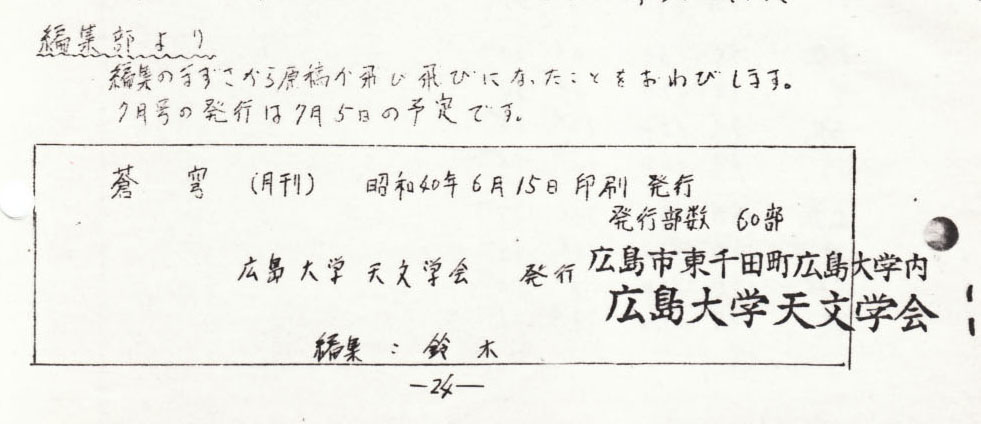 編集部より
編集のまずさから原稿が飛び飛びになったことをおわびします。
7月号の発行は7月5日の予定です。
蒼穹 (月刊) 昭和40年6月15日 印刷 発行
発行部数 60部
広島大学 天文学会 発行 広島市東千田町広島大学内
広島大学天文学会
編集:鈴木
—24—